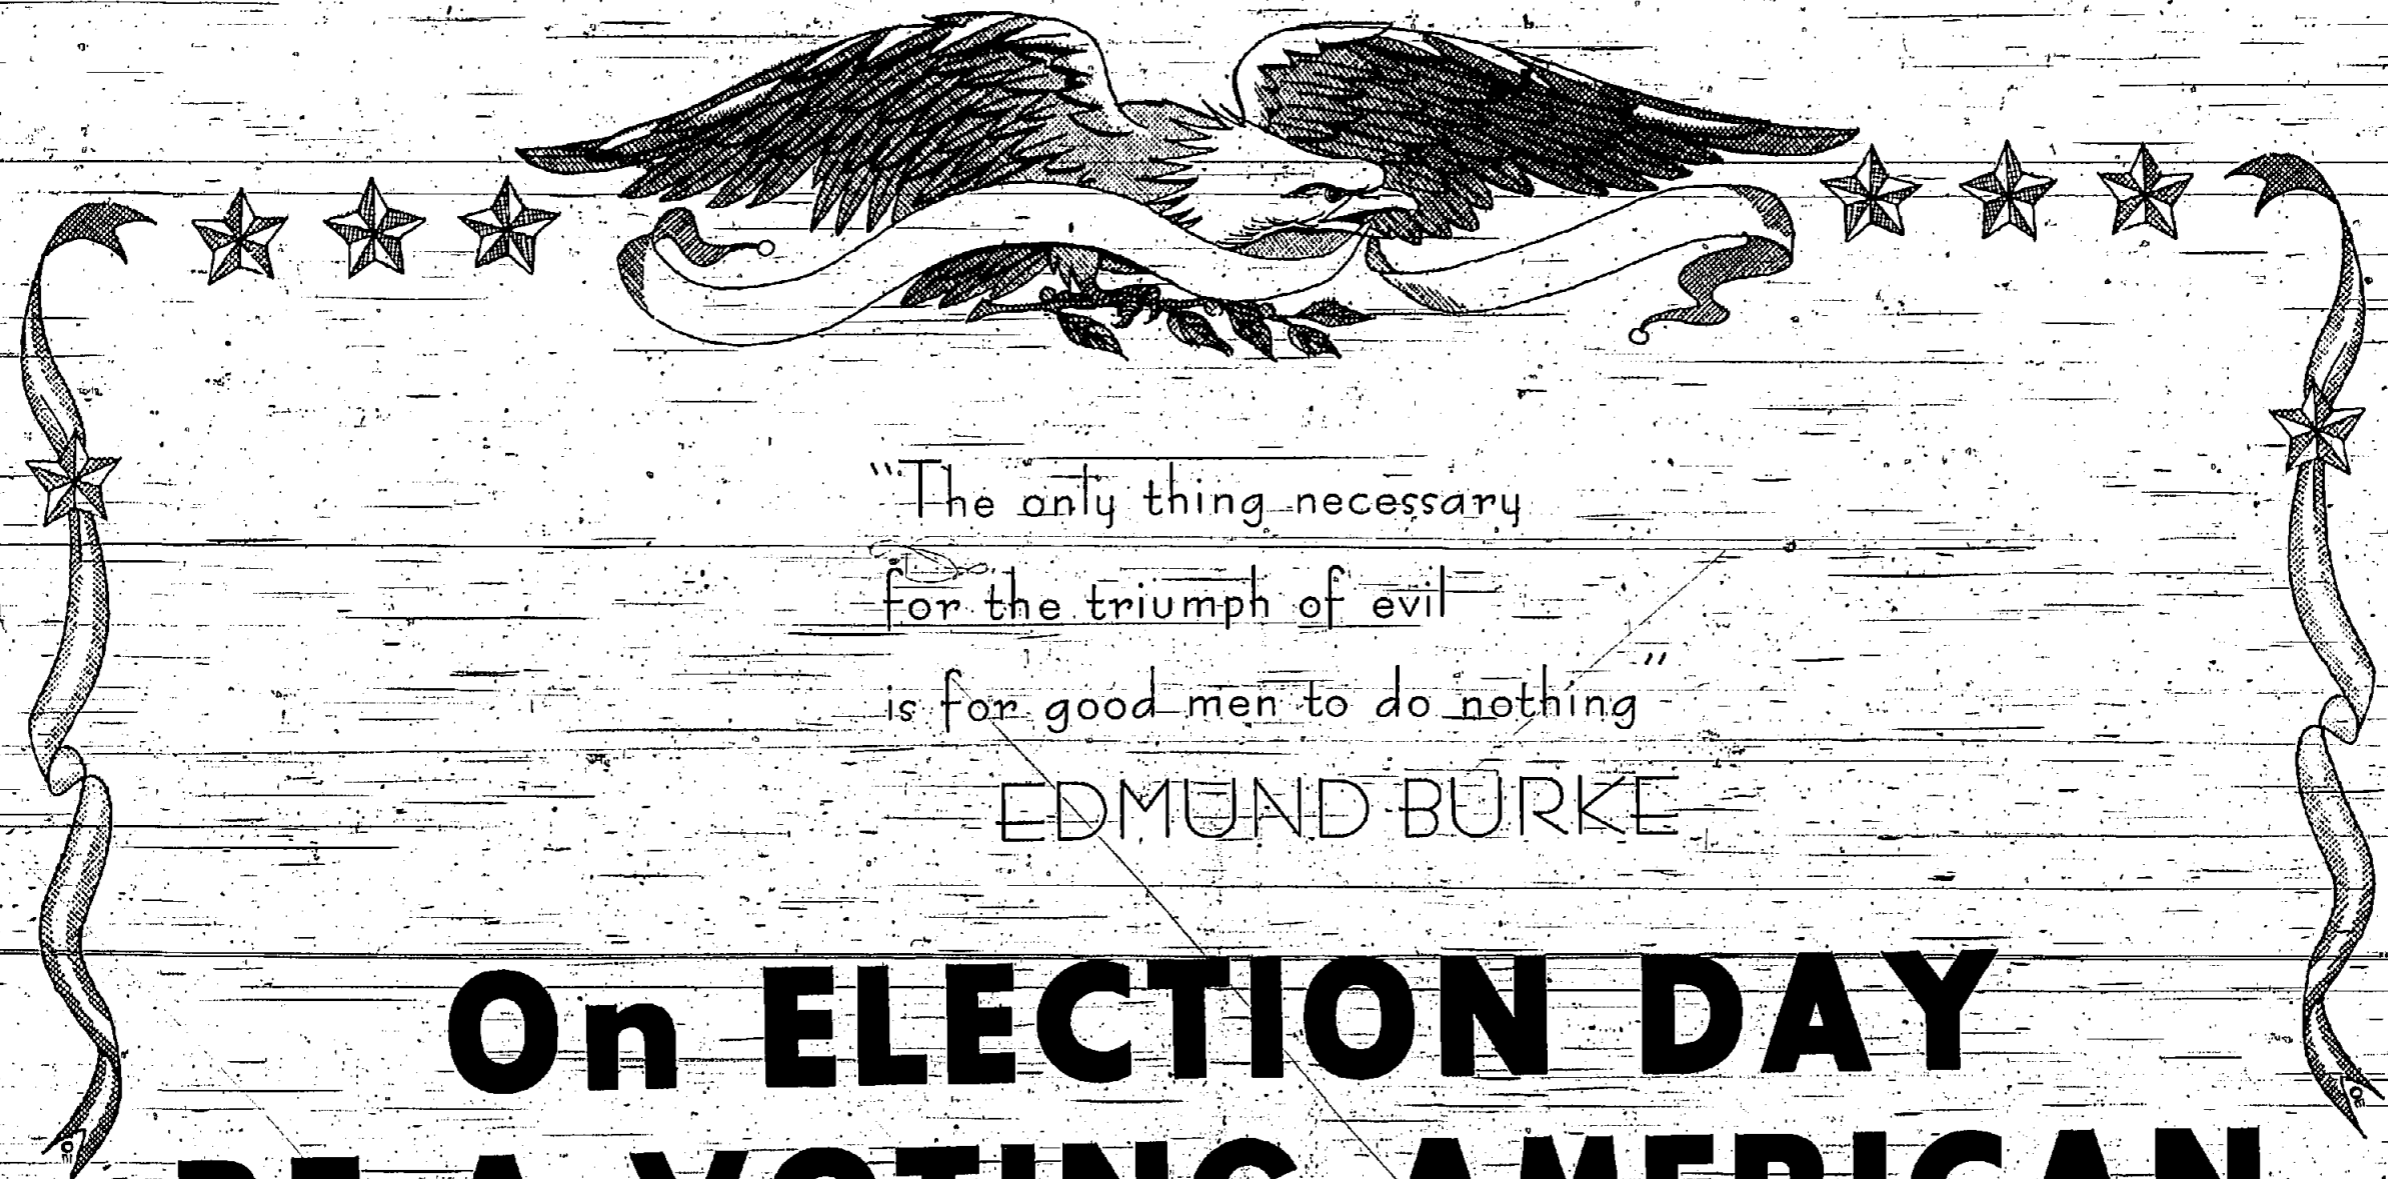 "The only thing necessary
for the triumph of evil
is for good men to do nothing"
EDMUND BURKE
On ELECTION DAY
BE A VOTING AMERICAN